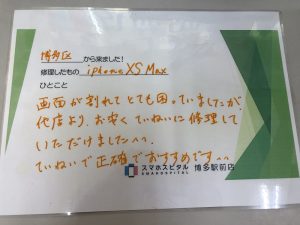 博多区 から来ました！
修理したもの iphone XS Max
ひとこと
画面が割れてとても困っていましたが、
他店より、お安くていねいに修理して
いただけました^^
ていねいで正確でおすすめです^^
スマホスピタル 博多駅前店
SMAHOSPITAL